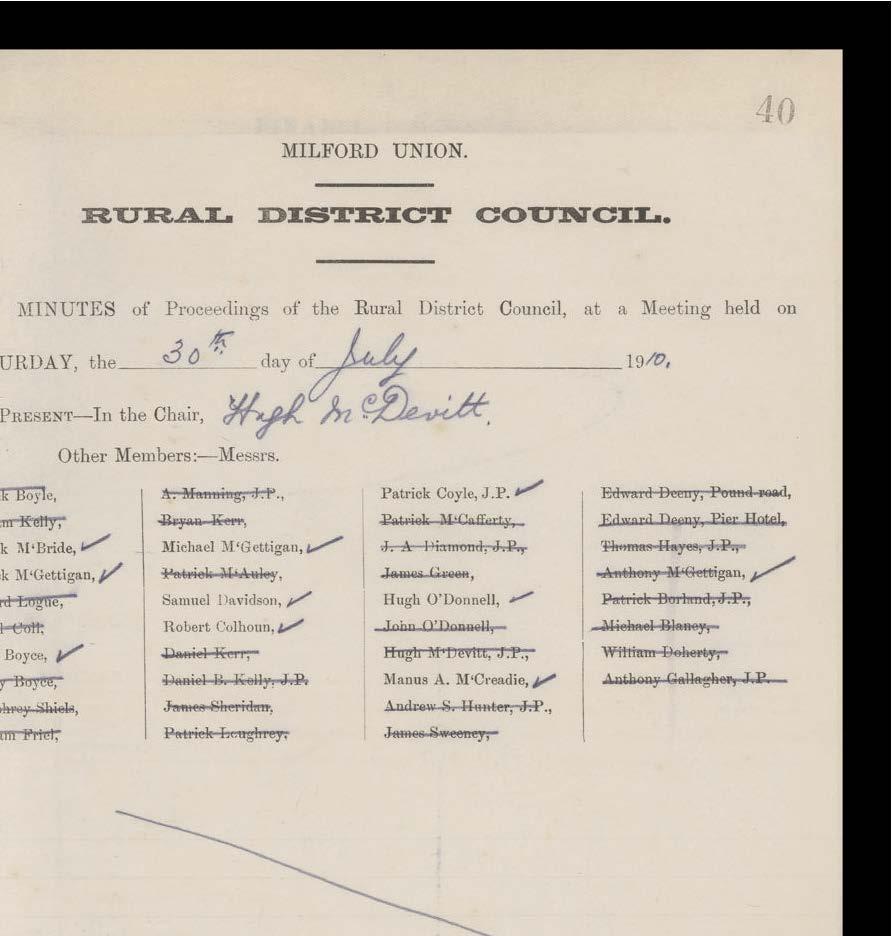 40
MILFORD UNION.
RURAL DISTRICT COUNCIL.
MINUTES of Proceedings of the Rural District Council, at a Meeting held on
URDAY, the 30th day of July 1910.
PRESENT—In the Chair, Hugh McDevitt.
Other Members:—Messrs.
k Boyle,
m Kelly,
k M‘Bride,
k M‘Gettigan,
rd Logue,
l Coll,
Boyce,
y Boyce,
hrey Shiels,
am Friel,
A. Manning, J.P.,
Bryan Kerr,
Michael M‘Gettigan,
Patrick M‘Auley,
Samuel Davidson,
Robert Colhoun,
Daniel Kerr,
Daniel B. Kelly, J.P.
James Sheridan,
Patrick Loughrey,
Patrick Coyle, J.P.
Patrick M‘Cafferty,
J. A. Diamond, J.P.,
James Green,
Hugh O’Donnell,
John O’Donnell,
Hugh M‘Devitt, J.P.,
Manus A. M‘Creadie,
Andrew S. Hunter, J.P.,
James Sweeney,
Edward Deeny, Pound-road,
Edward Deeny, Pier Hotel,
Thomas Hayes, J.P.,
Anthony M‘Gettigan,
Patrick Borland, J.P.,
Michael Blaney,
William Doherty,
Anthony Gallagher, J.P.